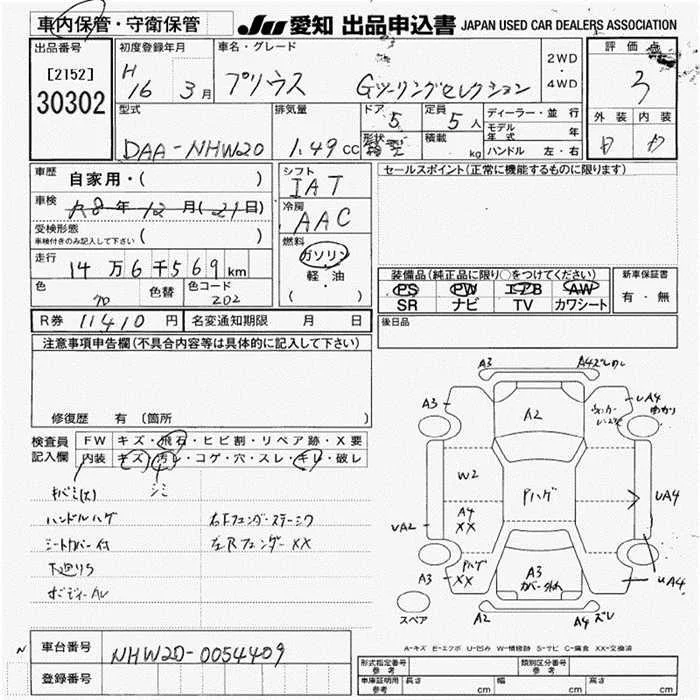 車内保管・守衛保管
JU 愛知 出品申込書 JAPAN USED CAR DEALERS ASSOCIATION
出品番号
[2152]
30302
初度登録年月
H
16 3月
車名・グレード
プリウス Gツーリングセレクション
2WD
・
4WD
評価点
3
外装 内装
型式
DAA-NHW20
排気量
1.49cc
ドア
5
形状
定員
5人
積載
kg
ディーラー・並行
モデル年式 年
ハンドル 左・右
車歴 自家用・( )
車検 年12月(21日)
受検形態
車検付きのみ記入して下さい ( )
走行 14万6千569km
色
70
色替
色コード
202
シフト
IAT
冷房
AAC
燃料
ガソリン
・
軽・油
( )
セールスポイント(正常に機能するものに限ります)
装備品(純正品に限り○をつけてください)
PS PW エアB AW
SR ナビ TV カワシート
新車保証書
有・無
後日品
R券 11410円 名変通知期限 月 日
注意事項申告欄(不具合内容等は具体的に記入して下さい)
修復歴 有 (箇所
検査員
記入欄
FW キズ・飛石・ヒビ割・リペア跡・X要
内装 キズ・汚レ・コゲ・穴・スレ・キレ・破レ
シミ
ハンドルハゲ
シートカバー付
下廻りS
右Fフェンダーステーミワ
左Rフェンダー XX
A3
A4ズレ
A3
UA4
A2
W2
A4
XX
Pハゲ
UA2
UA4
Pハゲ
XX
A3
A3
カバー外れ
UA4
A2
A4 ズレ
スペア
A-キズ E-エクボ U-凹み W-補修跡 S-サビ C-腐食 XX-交換済
車台番号 NHW20-0054409
登録番号
型式指定番号
参考
類別区分番号
参考
車庫証明用
参考
長さ cm 幅 cm 高さ cm